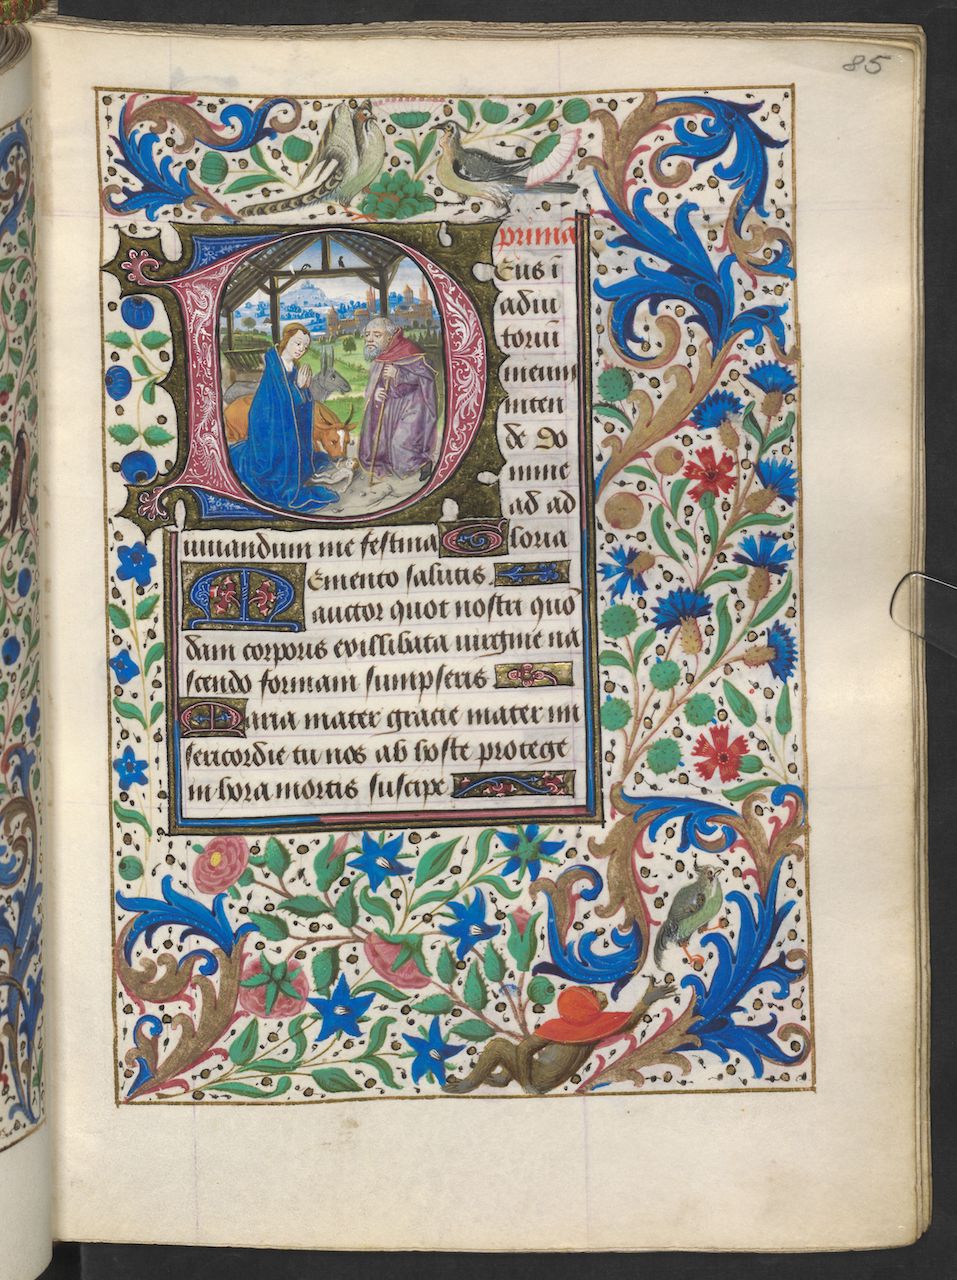 85
primā
Eus ī
adiu
toriū
meum
inten
de Do
mine
ad ad
iuuandum me festina Gloria
Memento salutis
auctor quot nostri quō
dam corporis exillibata uirgine na
scendo formam sumpseris
Maria mater gracie mater mi
sericordie tu nos ab hoste protege
in hora mortis suscipe